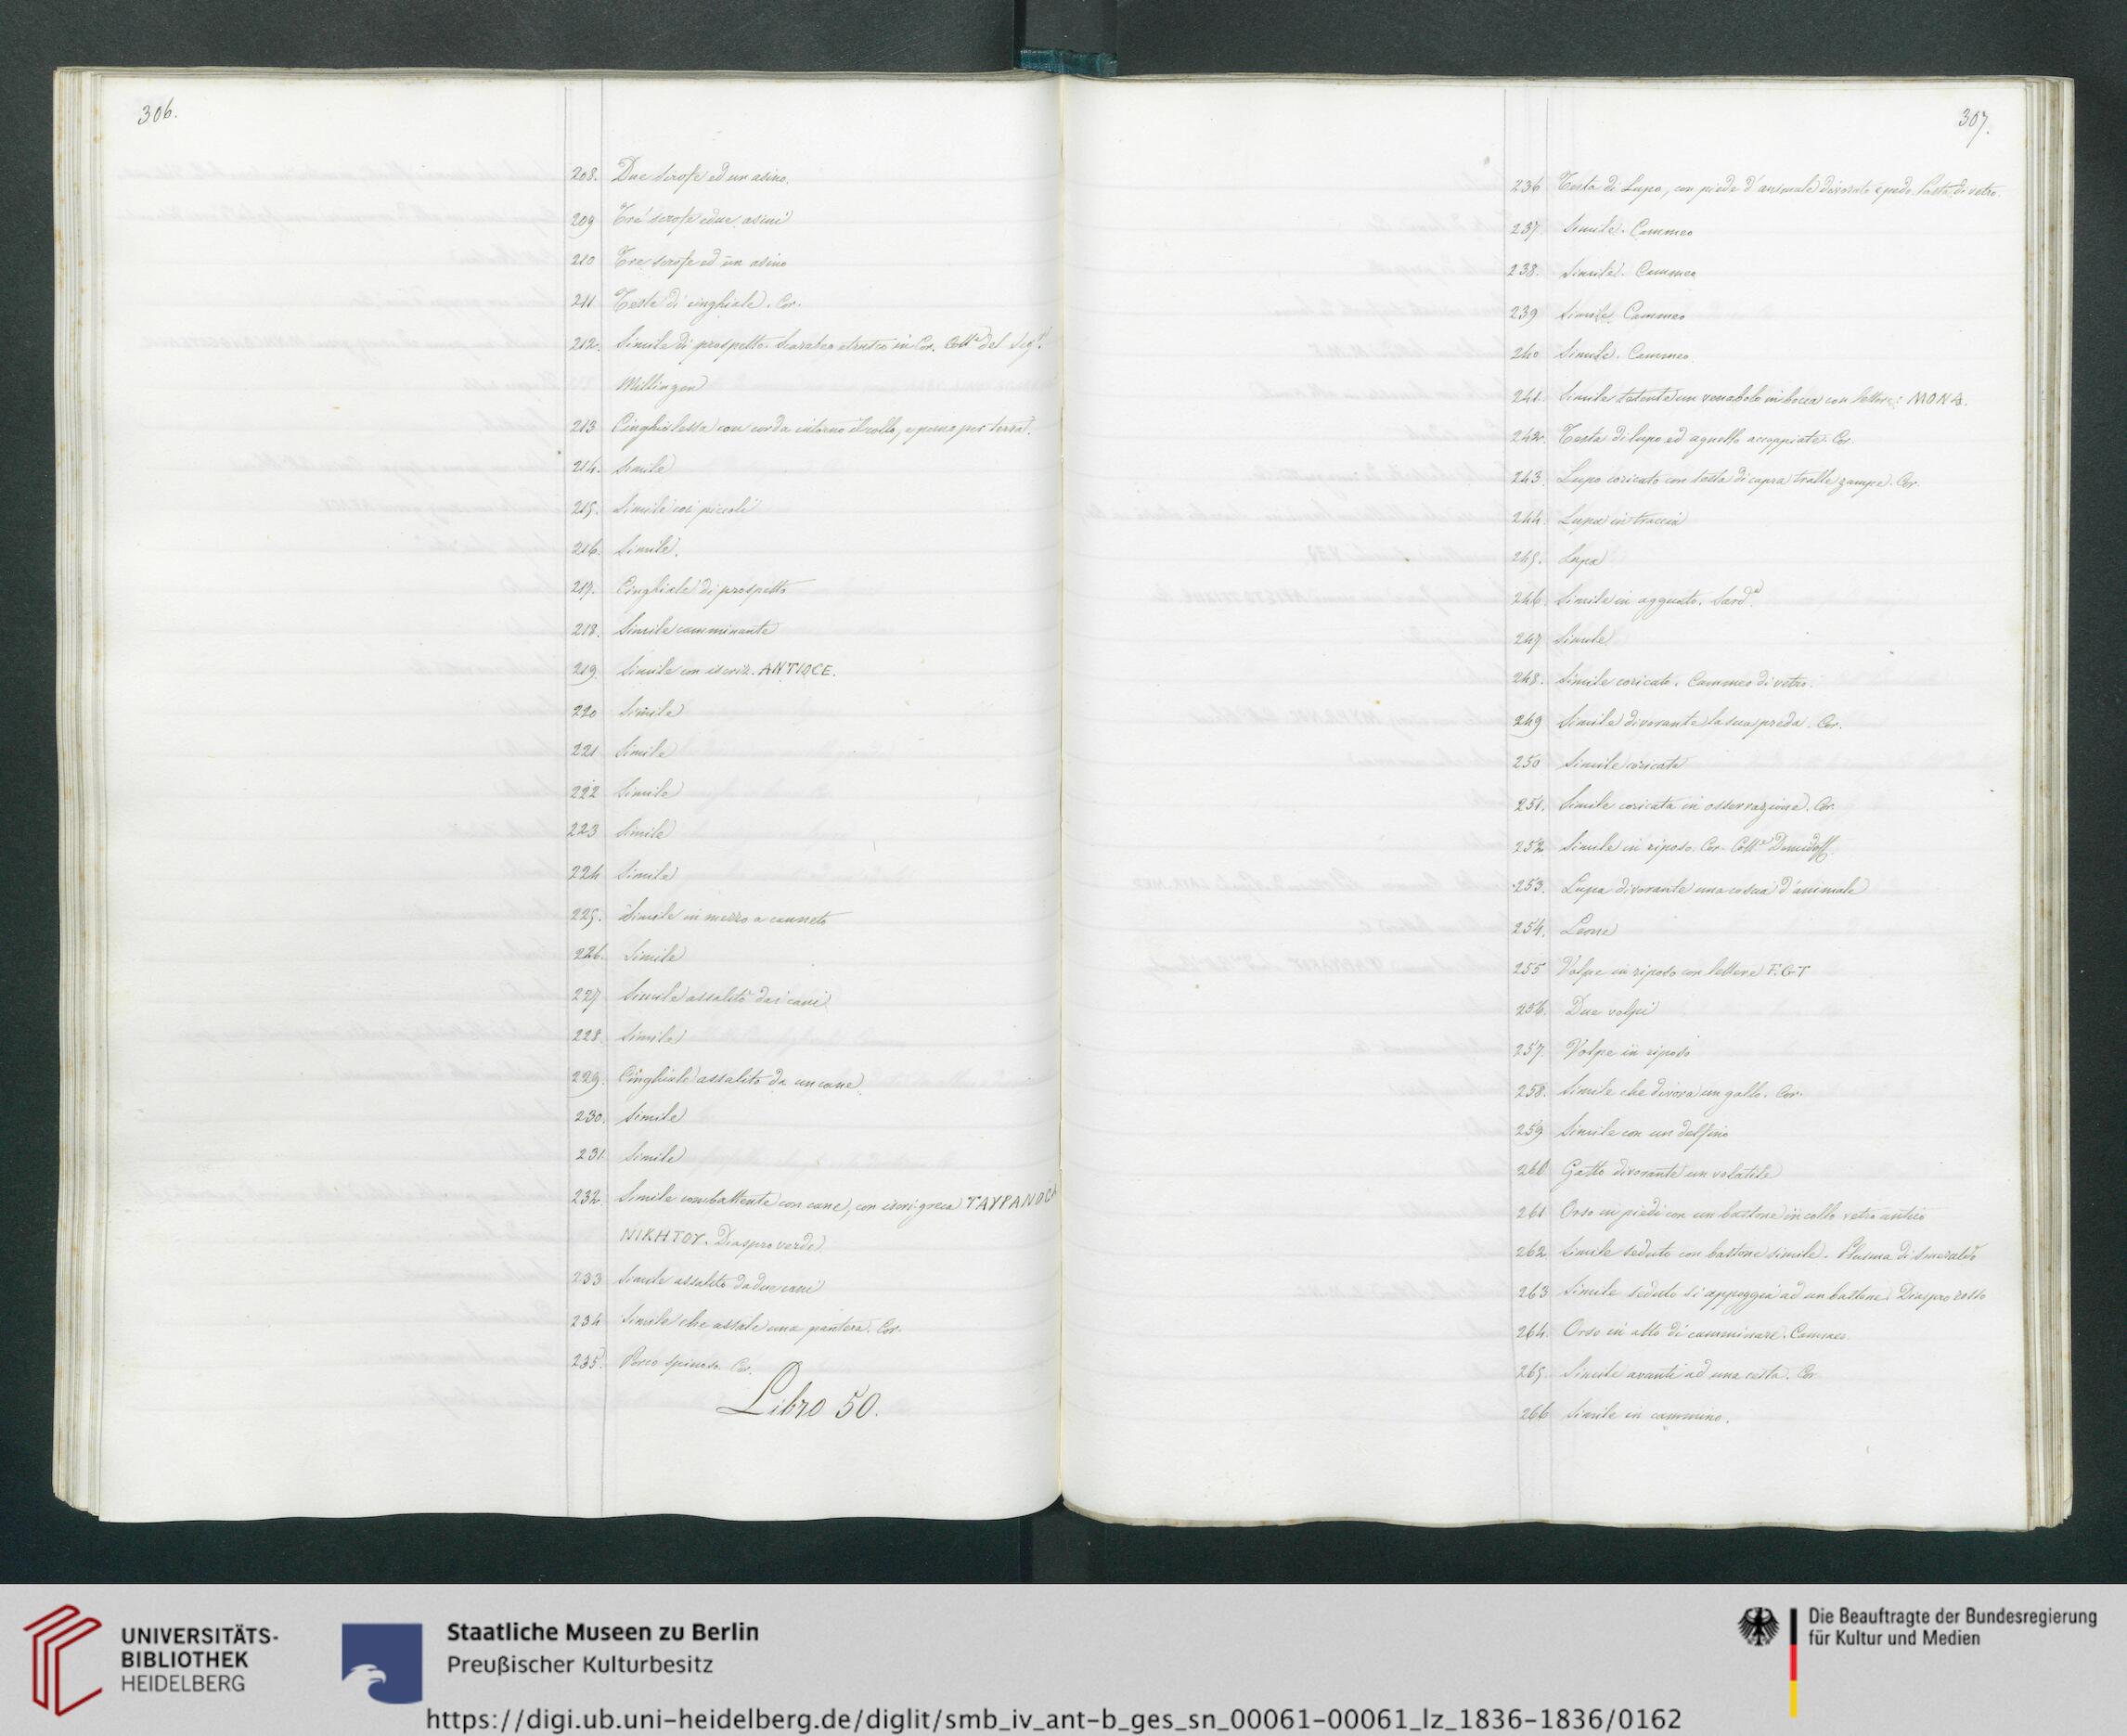 306.
208. Due scrofe ed un asino.
209 Tre scrofe e due asini
210 Tre scrofe ed un asino
211 Testa di cinghiale. Cor.
212. Simile di prospetto. Scarabeo etrusco in Cor. Coll.e del Sig.r
Millingen
213 Cinghialessa con corda intorno il collo, e per terra.
214. Simile
215. Simile coi piccoli
216. Simile.
217. Cinghiale di prospetto
218. Simile camminante
219. Simile con iscriz. ANTIOCE.
220 Simile
221 Simile
222 Simile
223 Simile
224 Simile
225. Simile in mezzo a canneto
226. Simile
227 Simile assalito dai cani
228. Simile
229. Cinghiale assalito da un cane
230. Simile
231. Simile
232. Simile combattente con cane, con iscri: greca
NIKHTOY. Diaspro verde
233 Simile assalito da due cani
234 Simile che assale una pantera. Cor.
235. Porco spinoso. Cor.
Libro 50.
307.
236 Testa di Lupo, con piede d'animale divorato Pasta di vetro.
237. Simile. Cammeo
238. Simile. Cammeo
239 Simile. Cammeo
240 Simile. Cammeo
241. Simile tenente un venabolo in bocca con lettere:
242. Testa di lupo ed agnello accoppiate. Cor.
243. Lupo coricato con testa di capra tralle zampe. Cor.
244. Lupa in traccia
245. Lupa
246. Simile in agguato. Sard.a
247 Simile
248. Simile coricata. Cammeo di vetro.
249 Simile divorante la sua preda. Cor.
250 Simile coricata
251. Simile coricata in osservazione. Cor.
252 Simile in riposo. Cor. Coll.e Demidoff.
253. Lupa divorante una coscia d'animale
254. Leone
255 Volpe in riposo con lettere F.G.T
256. Due volpi
257. Volpe in riposo
258. Simile che divora un gallo. Cor.
259 Simile con un delfino
260 Gatto divorante un volatile
261 Orso in piedi con un bastone in collo vetro antico
262 Simile seduto con bastone simile. Plasma di smeraldo
263 Simile seduto si appoggia ad un bastone. Diaspro rosso
264. Orso in atto di camminare. Cammeo
265. Simile avanti ad una cesta. Cor.
266 Simile in cammino.
UNIVERSITÄTS-
BIBLIOTHEK
HEIDELBERG
Staatliche Museen zu Berlin
Preußischer Kulturbesitz
Die Beauftragte der Bundesregierung
für Kultur und Medien
https://digi.ub.uni-heidelberg.de/diglit/smb_iv_ant-b_ges_sn_00061-00061_lz_1836-1836/0162